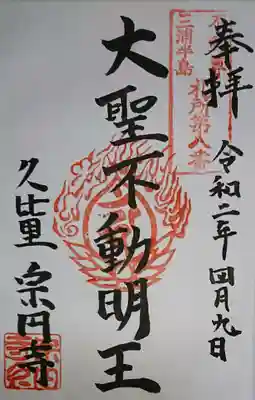 奉拝
令和二年四月九日
三浦半島
札所第八番
大聖不動明王
久比里 宗円寺